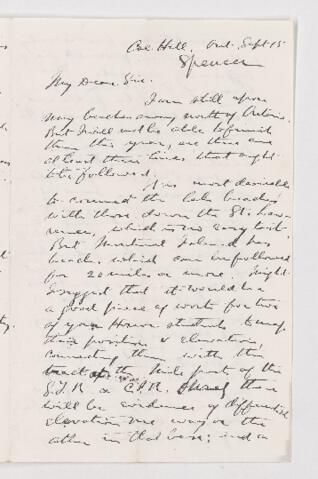 Coe Hill, Ont. Sept 15
Spencer
My Dear Sir.
I am still upon
my beaches away north of Ontario.
But I will not be able to finish
them this year, as there are
at least three lines that ought
to be followed.
It is most desirable
to connect the lake beaches
with those down the St. Law-
rence, which is no easy task.
But Montreal Island has
beaches which can be followed
for 20 miles or more. I might
suggest that it would be a
a good piece of work for two
of your Honour students to map
their position & elevation,
connecting them with the
the mile posts of the
G.T.R. & C.P.R. there
will be evidences of differential
elevation one way or the
other in that base; and a